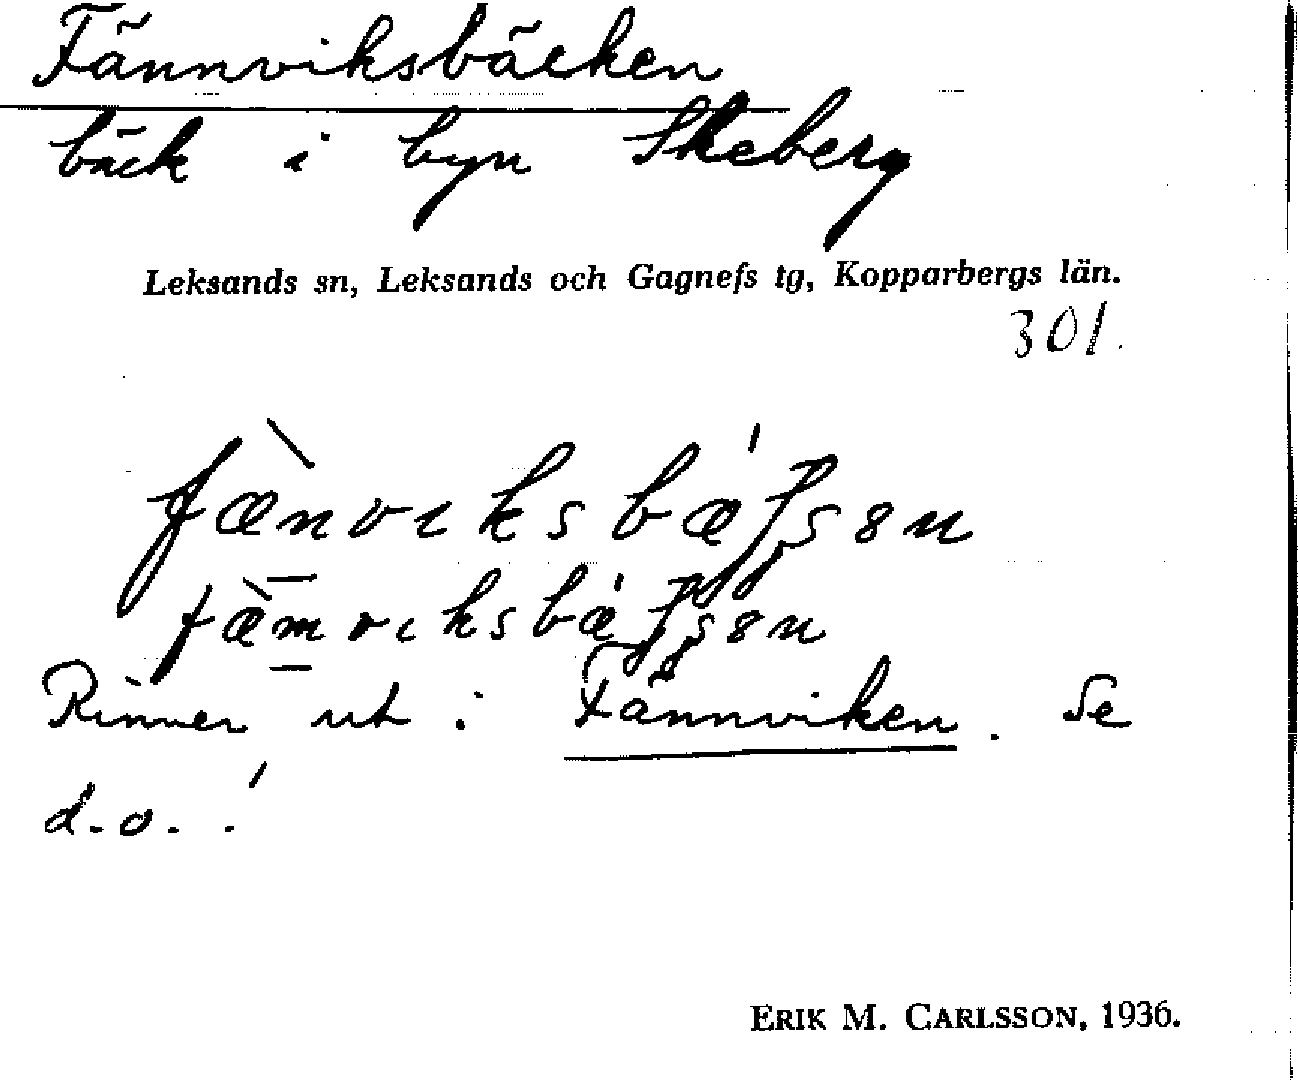 Fännviksbäcken
bäck i byn Skeberg
Leksands sn, Leksands och Gagnefs tg, Kopparbergs län.
301.
Rinner ut i Fännviken. Se
d.o.!
ERIK M. CARLSSON, 1936.